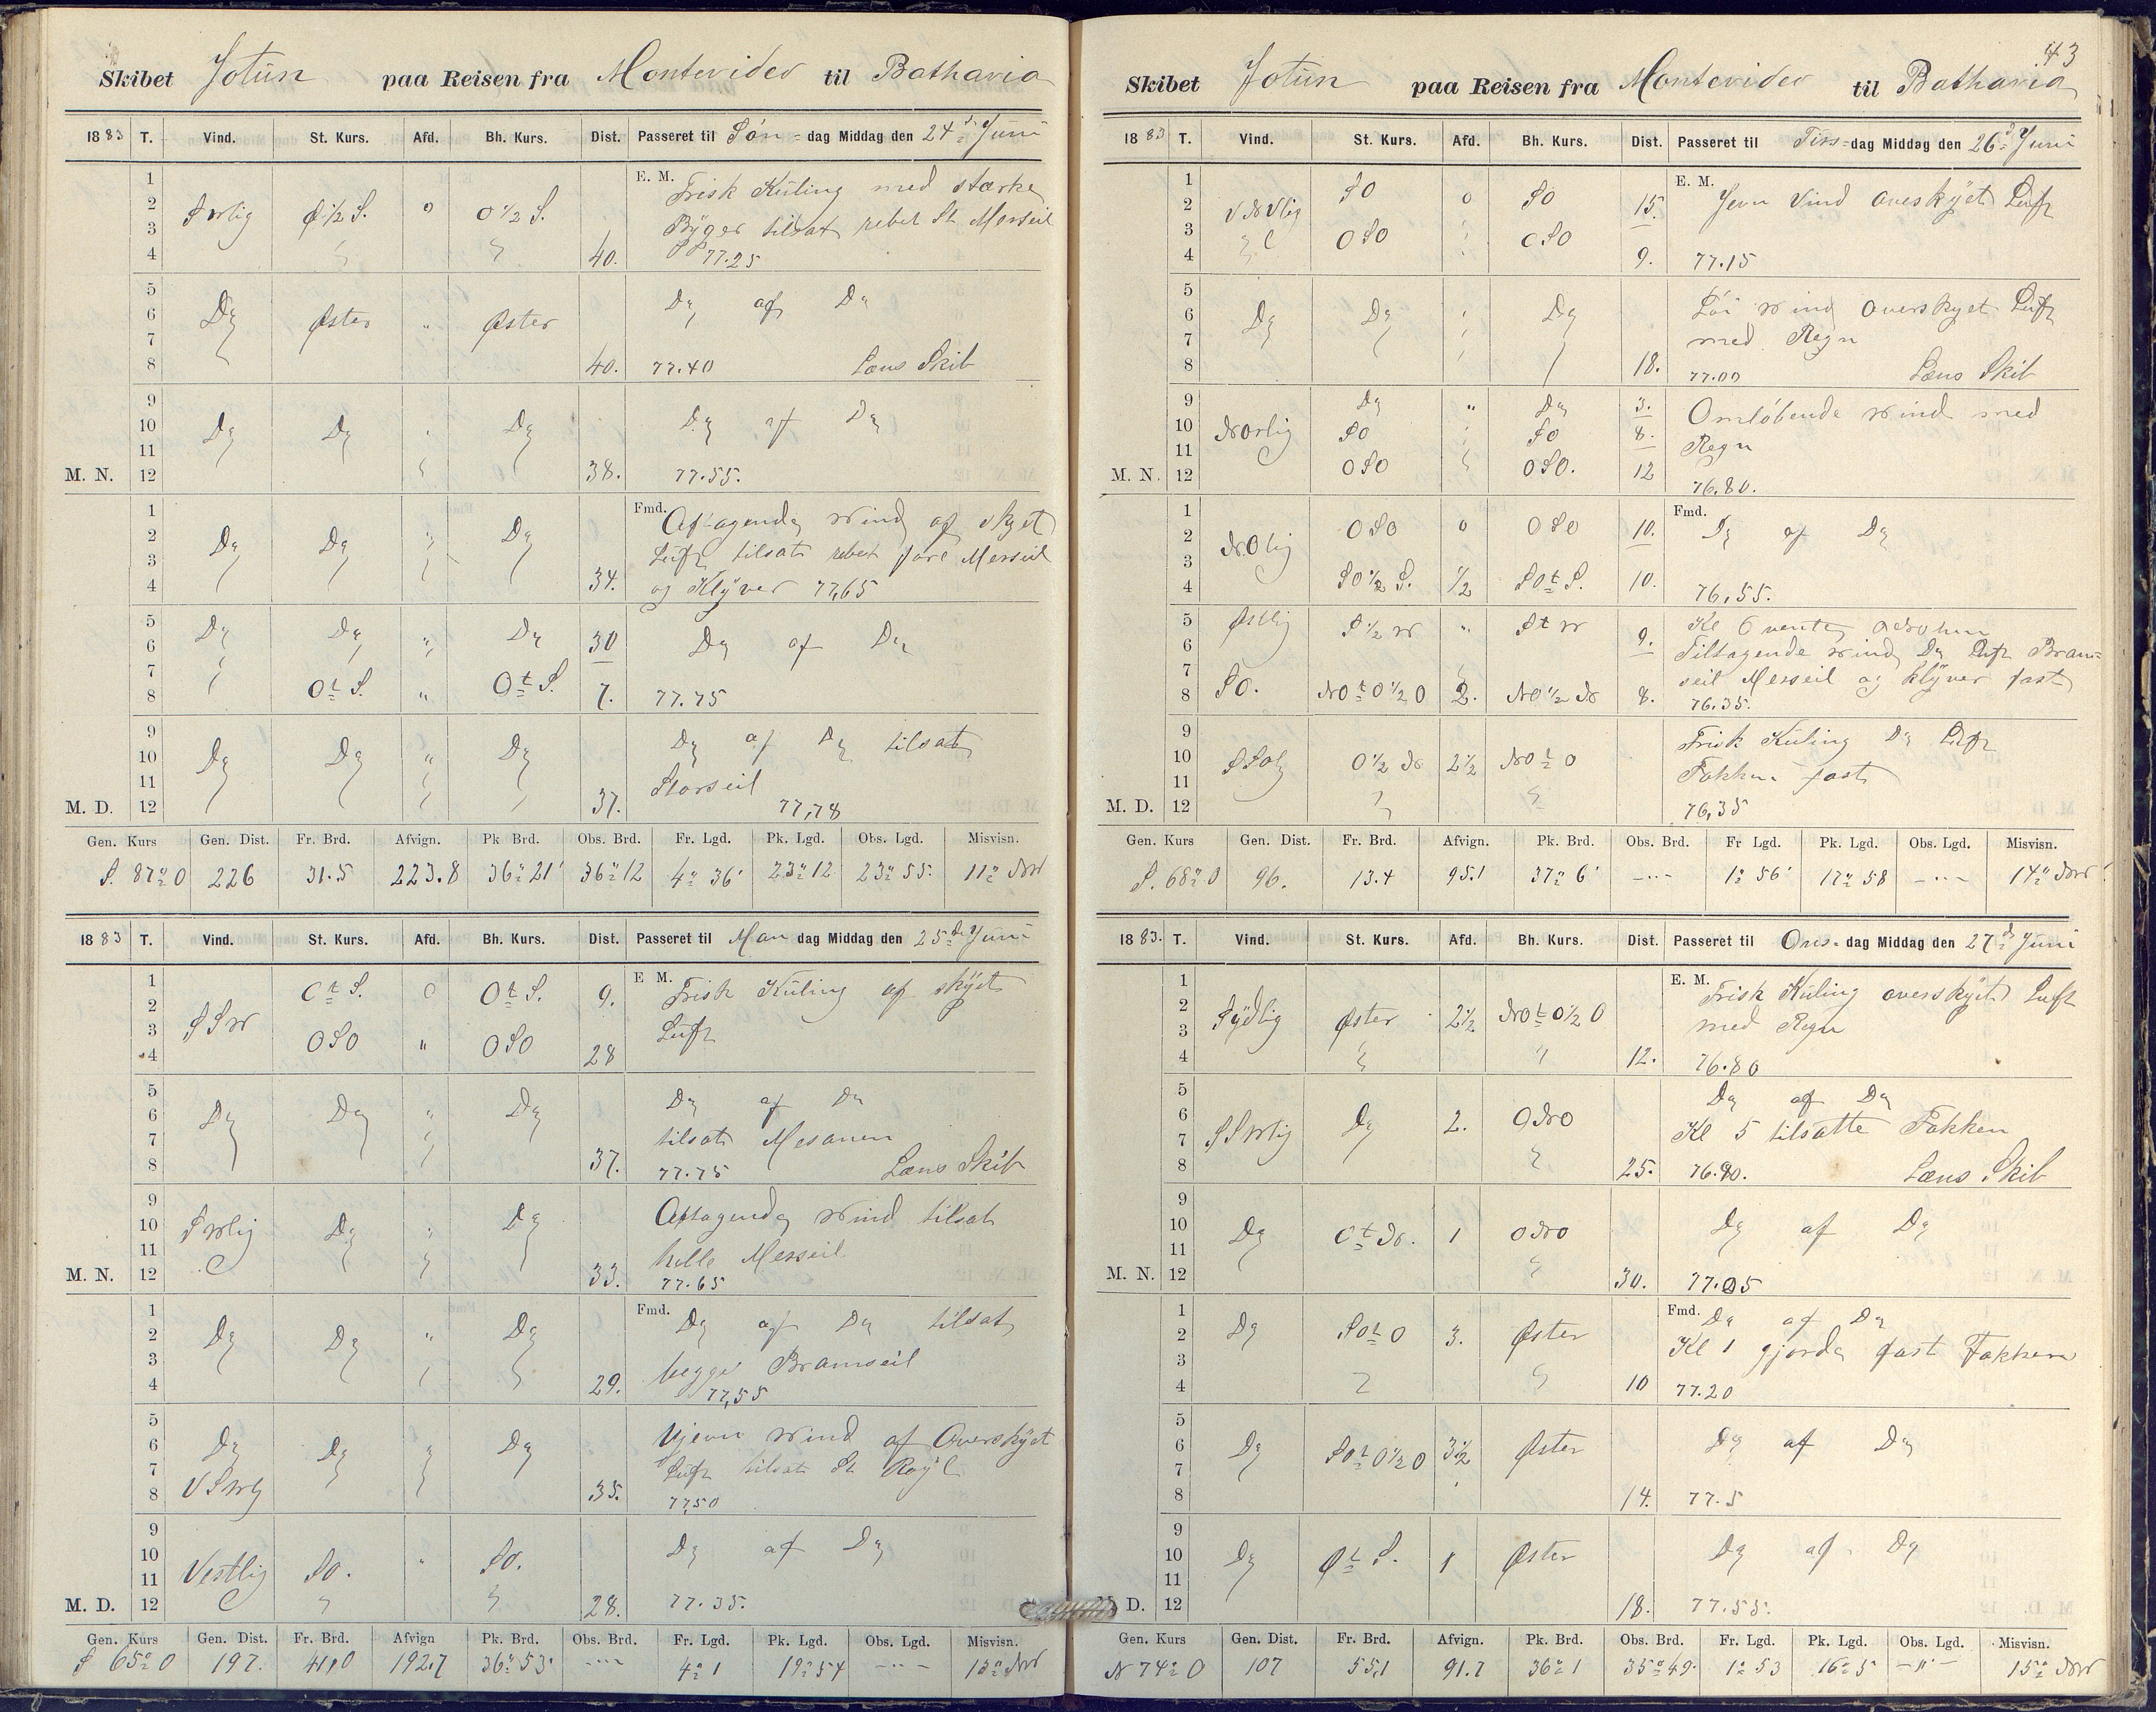 Skibet Jotun paa Reisen fra Montevideo til Bathavia
1883 T. Vind. St. Kurs. Afd. Bh. Kurs. Dist. Passeret til Søn-dag Middag den 24d Juni
1 E. M. Frisk Kuling med stærke
2 SWlig O 1/2 S. 0 O 1/2 S. Byger tilsat rebet St Merseil
3
4 40. 77.25
5
6 Do Øster " Øster Do af Do
7
8 40. 77.40 Læns Skib
9
10 Do Do Do Do af Do
11
M. N. 12 38. 77.55.
1 Fmd. Aftagende Wind af skyet
2 Do Do " Do Luft tilsat rebet fore Merseil
3
4 34. og Klyver 77,65
5 Do Do " Do 30
6 Do af Do
7
8 Ot S. " Ot S. 7. 77.75
9 Do af Do tilsat
10 Do Do " Do
11 Storseil
M. D. 12 37. 77,78
Gen. Kurs Gen. Dist. Fr. Brd. Afvign. Pk Brd. Obs. Brd. Fr. Lgd. Pk. Lgd. Obs. Lgd. Misvisn.
S. 87° O 226 31.5 223.8 36° 21' 36° 12 4° 36' 23° 12 23° 55. 11° NW
1883 T. Vind. St. Kurs. Afd. Bh. Kurs. Dist. Passeret til Mandag Middag den 25d Juni
1 Ot S. 0 Ot S. 9. E M. Frisk Kuling af skyet
2 Luft
3 SSW OSO " OSO
4 28
5 Do af Do
6 Do Do " Do tilsat Mesanen
7
8 37. 77.75 Læns Skib
9 Aftagende Wind tilsat
10 SWlig Do " Do
11 hele Merseil
M. N. 12 33. 77.65
1 Fmd. Do af Do tilsat
2 Do Do " Do
3 begge Bramseil
4 29. 77,55
5 Ujevn Wind af Overskyet
6 Do Do " Do Luft tilsat St Royl
7
8 VSWlg 35. 77,50
9 Do af Do
10
11 Vestlig SO. " SO.
M. D. 12 28. 77.35.
Gen. Kurs Gen. Dist. Fr. Brd. Afvign Pk. Brd. Obs. Brd. Fr. Lgd. Pk. Lgd. Obs. Lgd. Misvisn.
S 65° O 197. 41,0 192,7 36° 53' -"- 4° 1 19° 54 -"- 13° NW
43
Skibet Jotun paa Reisen fra Montevideo til Bathavia
1883 T. Vind. St. Kurs. Afd. Bh. Kurs. Dist. Passeret til Tirs-dag Middag den 26d Juni
1 SO 0 SO 15. E. M. Jevn Vind overskyet Luft
2 VNVlig
3 OSO OSO
4 9. 77.15
5 Løi Wind overskyet Luft
6 Do Do Do
7 med Regn
8 18. 77.00 Læns Skib
9 Do " Do 3. Omløbende Wind med
10 NOrlig SO SO 8. Regn
11
M. N. 12 OSO OSO. 12 76.80.
1 OSO 0 OSO 10. Fmd. Do af Do
2 NOlig
3
4 SO 1/2 S. 1/2 SOt S. 10. 76,55.
5 Østlig S 1/2 W " St W Kl 6
6 9. Tiltagende Wind Do Luft Bram-
7 seil Merseil og Klyver fast
8 SO. NOt O 1/2 O 2. NO 1/2 N 8. 76.35.
9 Frisk Kuling Do Luft
10 SSOlg O 1/2 N 2 1/2 NOt O
11 Fokken fast
M. D. 12 76,35
Gen. Kurs Gen. Dist. Fr. Brd. Afvign. Pk. Brd. Obs. Brd. Fr Lgd. Pk. Lgd. Obs. Lgd. Misvisn.
S. 68° O 96. 13.4 95.1 37° 6' -"- 1° 56' 17° 58 -"- 14° NW
1883. T. Vind. St. Kurs. Afd. Bh. Kurs. Dist. Passeret til Ons-dag Middag den 27d Juni
1 E. M. Frisk Kuling overskyet Luft
2 Sydlig Øster 2 1/2 NOt O 1/2 O
3 med Regn
4 12. 76.80
5 Do af Do
6 SSWlig Do 2. ONO Kl 5 tilsatte Fokken
7
8 25. 76.90. Læns Skib
9
10 Do Ot N. 1 ONO Do af Do
11
M. N. 12 30. 77.05
1 Fmd. Do af Do
2 Do SOt O 3. Øster Kl 1 gjorde fast Fokken
3
4 10 77.20
5
6 Do SOt O 1/2 O 3 1/2 Øster Do af Do
7
8 14. 77.5
9
10 Do Øt S. 1 Øster Do af Do
11
D. 12 18. 77.55.
Gen. Kurs Gen. Dist. Fr. Brd. Afvign. Pk. Brd. Obs. Brd. Fr. Lgd. Pk. Lgd. Obs. Lgd. Misvisn.
N 74° O 107 55,1 91.7 36° 1 35° 49. 1° 53 16° 5 -"- 15° NW